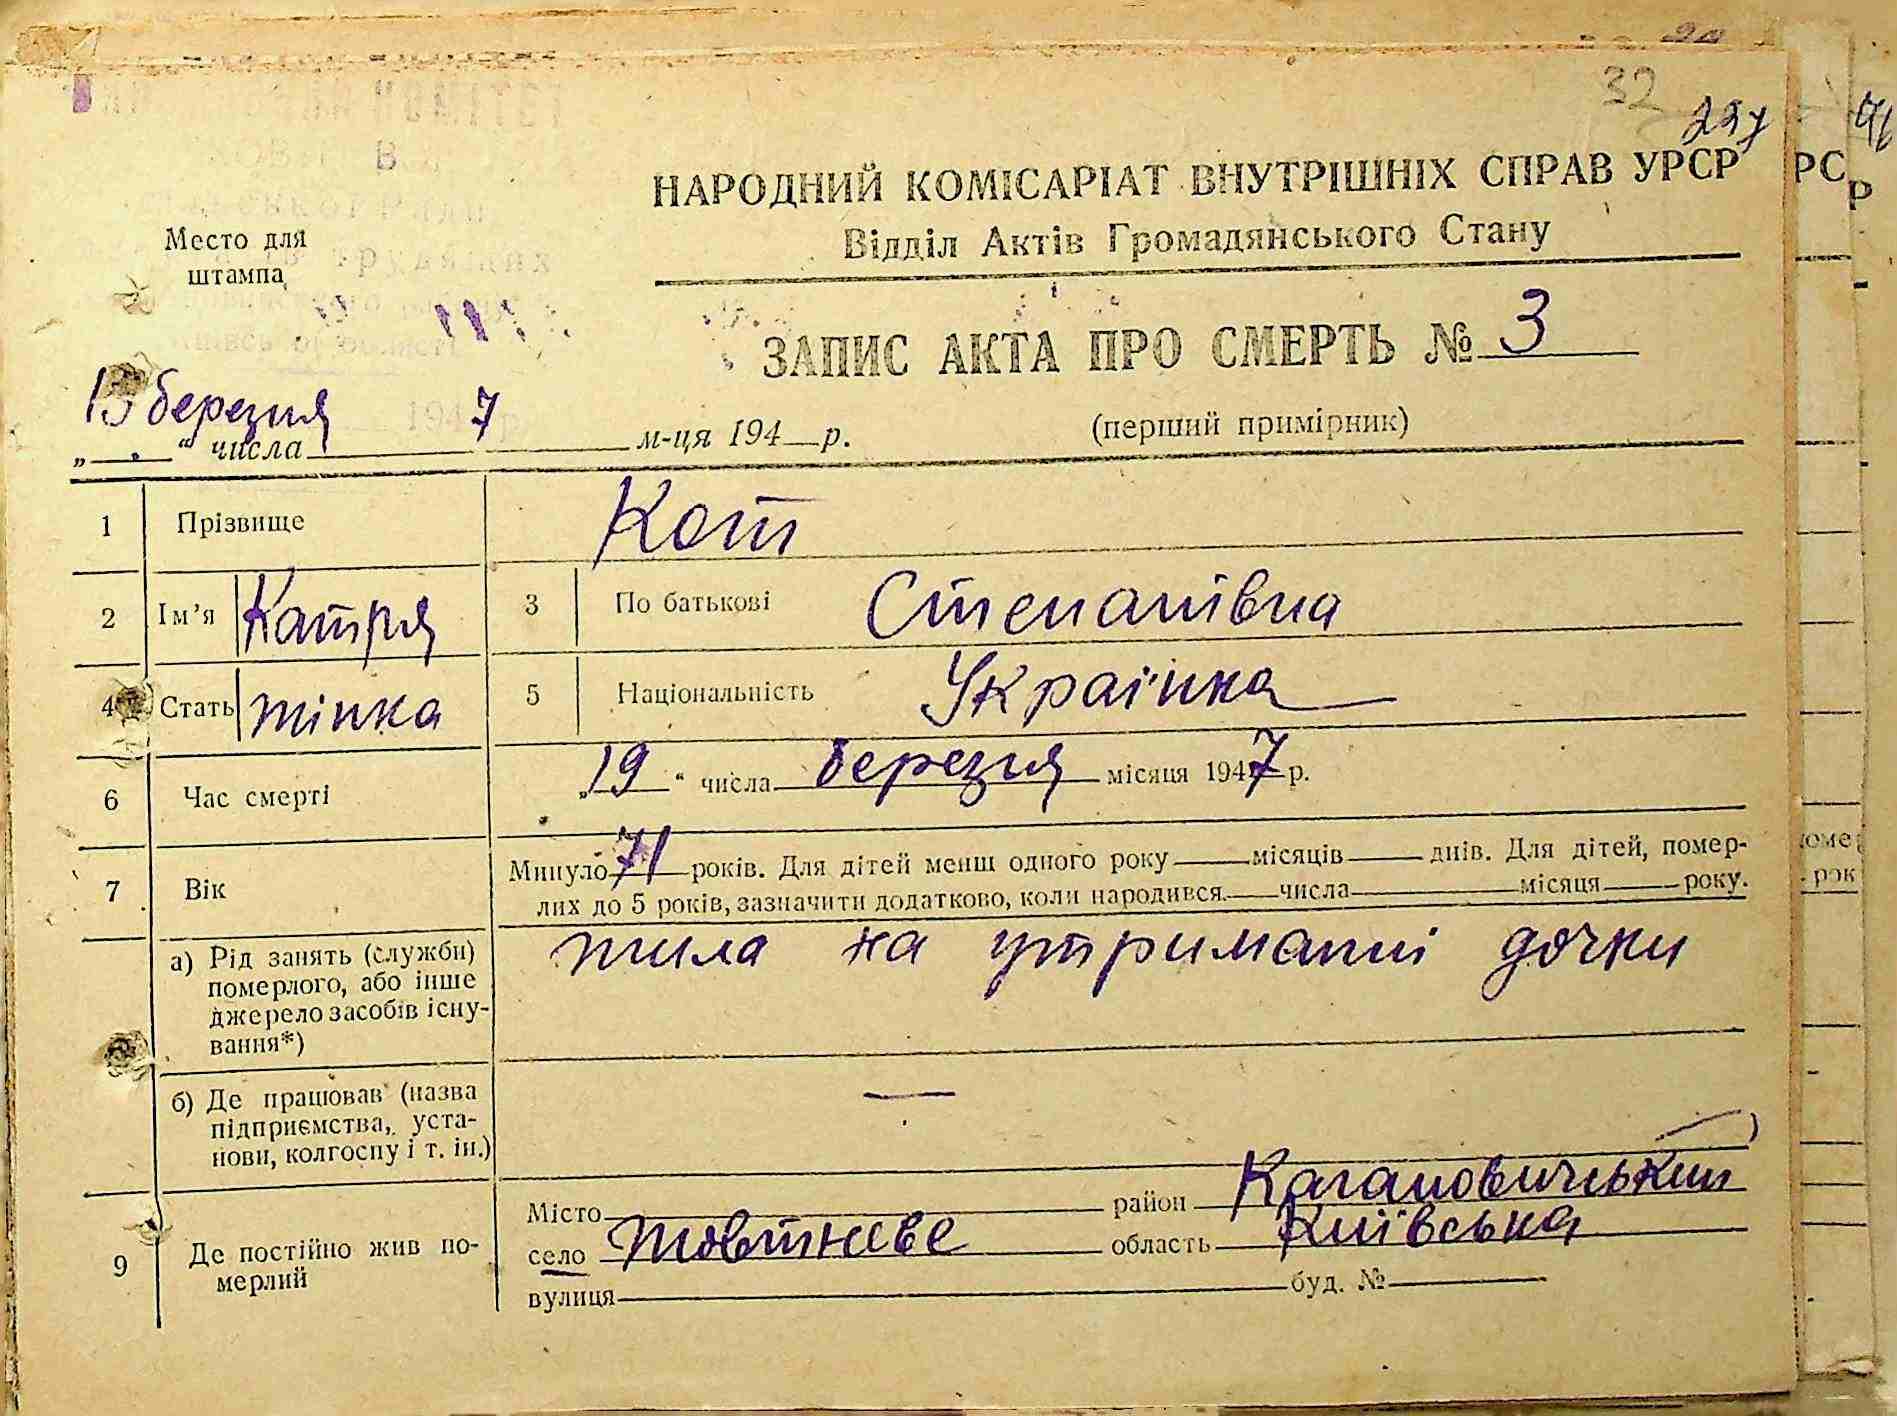 32
НАРОДНИЙ КОМІСАРІАТ ВНУТРІШНІХ СПРАВ УРСР
Відділ Актів Громадянського Стану
Место для
штампа
ЗАПИС АКТА ПРО СМЕРТЬ № 3
березня 7
„ “ числа м-ця 194 р.
(перший примірник)
1 Прізвище Кот
2 Ім’я Катря 3 По батькові Степанівна
4 Стать жінка 5 Національність Українка
6 Час смерті „19“ числа березня місяця 1947 р.
7 Вік Минуло 71 років. Для дітей менш одного року місяців днів. Для дітей, помер-
лих до 5 років, зазначити додатково, коли народився числа місяця року.
а) Рід занять (служби)
померлого, або інше
джерело засобів існу-
вання*)
жила на утриманні дочки
б) Де працював (назва
підприємства, уста-
нови, колгоспу і т. ін.)
—
9 Де постійно жив по-
мерлий
Місто район Кагановичський
село Жовтневе область Київська
вулиця буд. №